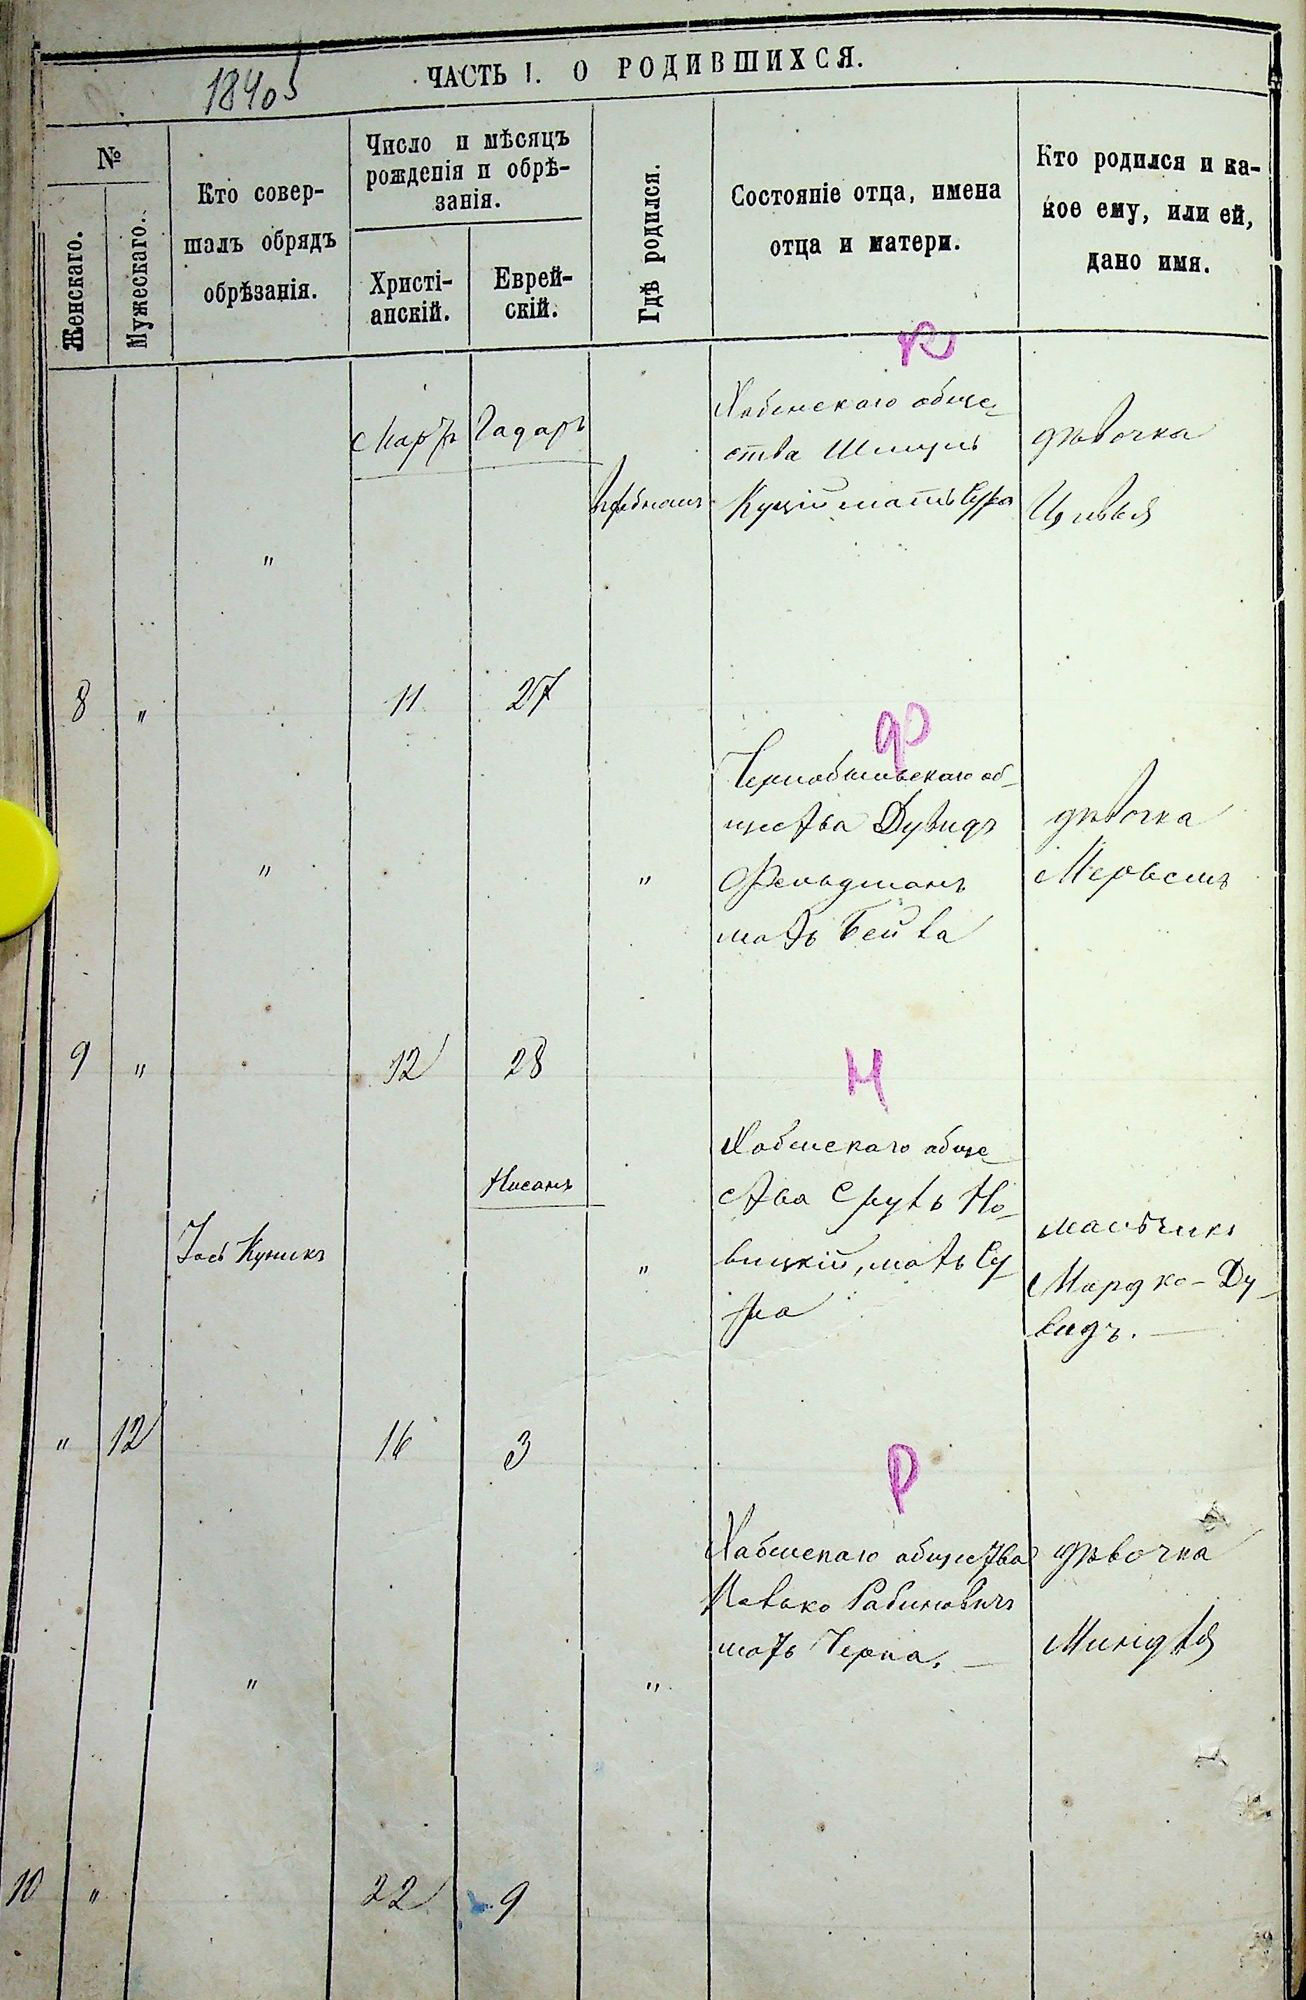 1840
ЧАСТЬ I. О РОДИВШИХСЯ.
№
Женскаго.
Мужескаго.
Кто совер-
шалъ обрядъ
обрѣзанія.
Число и мѣсяцъ
рожденія и обрѣ-
занія.
Христі-
анскій.
Еврей-
скій.
Гдѣ родился.
Состояніе отца, имена
отца и матери.
Кто родился и ка-
кое ему, или ей,
дано имя.
К
Мартъ
Гадаръ
Хабенскаго обще-
ства Шмуль
мать Сура
дѣвочка
Цивья
"
8 " 11 27
Ф
Чернобыльскаго об-
щества Дувидъ
Фельдманъ
мать Бейла
дѣвочка
"
"
9 " 12 28
Н
Нисанъ
Хабенскаго обще-
ства Сруль Но-
вицкій, мать Су-
ра
мальчикъ
Мордко-Ду-
видъ.
Кушнкъ
"
" 12 16 3
Р
Хабенскаго общества
Рабиновичъ
мать Черна.
дѣвочка
"
"
10 " 22 9